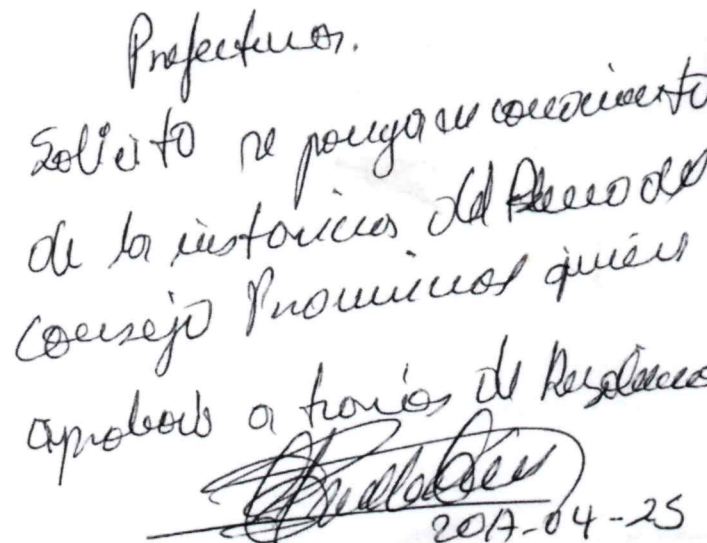 Prefectura.
Solicito se ponga en conocimiento
de la instancia del Pleno del
Consejo Provincial quien
aprobará a través de Resolución
2017-04-25